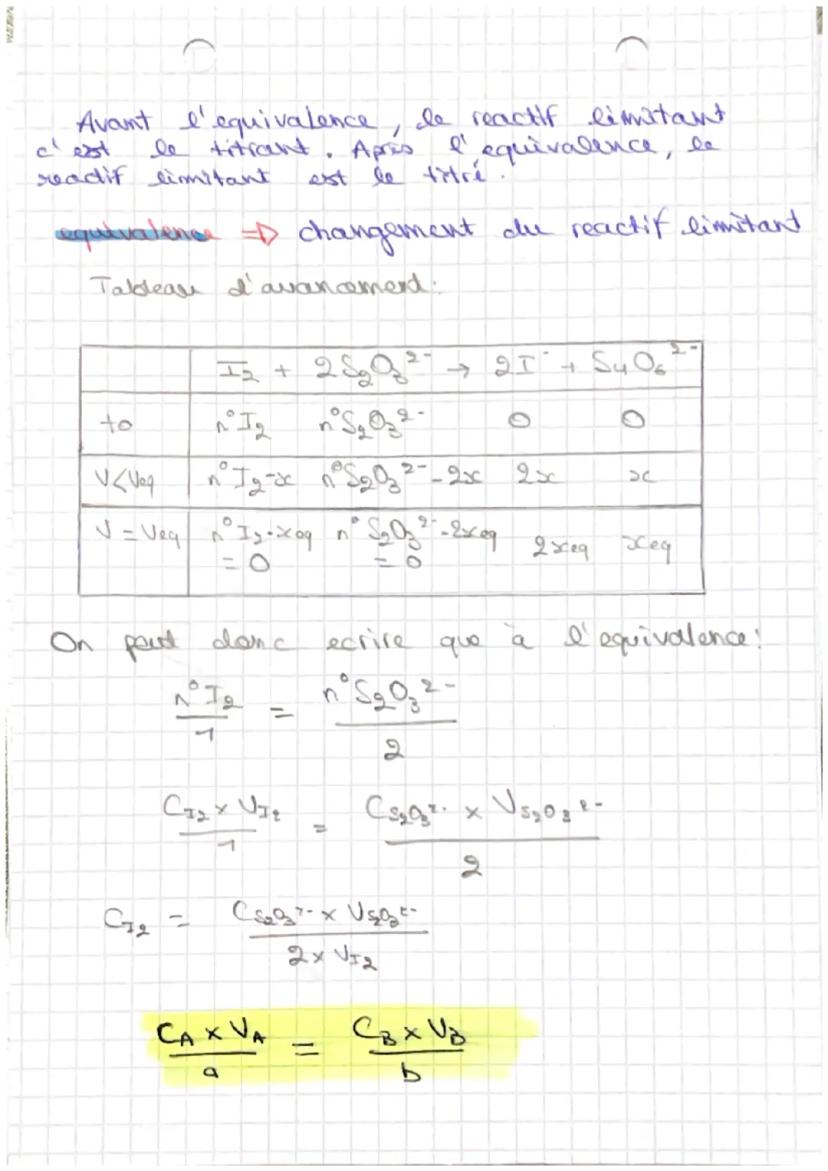 Avant l'equivalence, le reactif limitant
c'est le titrant. Après l'equivalence, le
reactif limitant est le titré.
equivalence ⇒ changement du reactif limitant
Tableau d'avancement:
I2 + 2S2O3²⁻ → 2I⁻ + S4O6²⁻
to n°I2 n°S2O3²⁻ 0 0
V<Veq n°I2-x n°S2O3²⁻-2x 2x x
V=Veq n°I2-xeq n°S2O3²⁻-2xeq 2xeq xeq
=0 =0
On peut donc ecrire que à l'equivalence:
n°I2/1 = n°S2O3²⁻/2
CI2 × VI2/1 = CS2O3²⁻ × VS2O3²⁻/2
CI2 = CS2O3²⁻ × VS2O3²⁻/2 × VI2
CA × VA/a = CB × VB/b